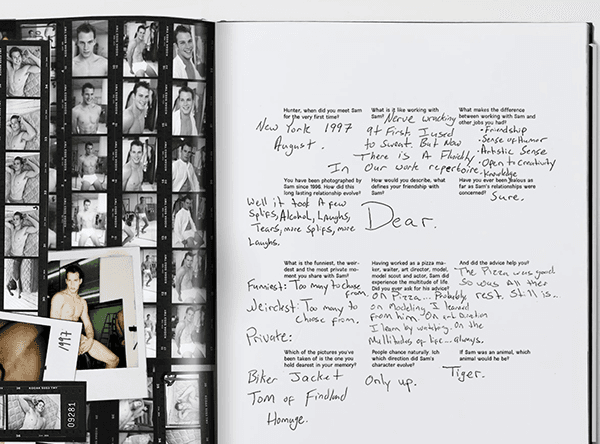 Hunter, when did you meet Sam
for the very first time?
New York 1997
August.
What is it like working with
Sam? Nerve wracking
at First I used
to Sweat. But Now
There is A Fluidity
In Our work repertoire.
What makes the difference
between working with Sam and
other jobs you had?
• Friendship
• Sense of Humor
• Artistic Sense
• Open to Creativity
• Knowledge
You have been photographed by
Sam since 1996. How did this
long lasting relationship evolve?
Well it took A few
Splifs, Alcohol, Laughs,
Tears, more splifs, more
Laughs.
How would you describe, what
defines your friendship with
Sam?
Dear.
Have you ever been jealous as
far as Sam's relationships were
concerned?
Sure.
What is the funniest, the weir-
dest and the most private mo-
ment you share with Sam?
Funniest: Too many to chose
from.
Weirdest: Too many to
chose from.
Private:
Having worked as a pizza ma-
ker, waiter, art director, model,
model scout and actor, Sam did
experience the multitude of life.
Did you ever ask for his advice?
On Pizza... Probably
on Modeling I learned
from him. On Art Direction
I learn by watching. On the
Multitudes of Life... always.
And did the advice help you?
The Pizza was good
So was All the
rest. Still is..
Which of the pictures you've
been taken of is the one you
hold dearest in your memory?
Biker Jacket
Tom of Findland
Homage.
People chance naturally. Ich
which direction did Sam's
character evolve?
Only up.
If Sam was an animal, which
animal would he be?
Tiger.
1997
09281